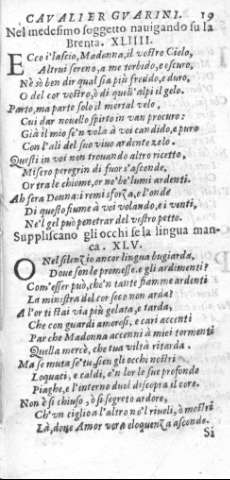 CAVALIER GVARINI. 19
Nel medesimo soggetto nauigando su la
Brenta. XLIIII.
ECco i'lascio, Madonna, il vostro Cielo,
Altrui sereno, a me torbido, e oscuro,
Ne sò ben dir qual sia più freddo, e duro,
O del cor vostro, ò di quest'alpi il gelo.
Parto, ma parte solo il mortal velo,
Cui dar nouello spirto in van procuro:
Già il mio se'n vola à voi candido, e puro
Con l'ali del suo viuo ardente zelo.
Questi in voi non trouando altro ricetto,
Misero peregrin di fuor s'asconde,
Or tra le chiome, or ne' be' lumi ardenti.
Ah fera Donna: i remi sforza, e l'onde
Di questo fiume à voi volando, e i venti,
Ne'l gel può penetrar del vostro petto.
Suppliscano gli occhi se la lingua man-
ca. XLV.
O Nel silenzio ancor lingua bugiarda,
Doue son le promesse. e gli ardimenti?
Com'esser può, che'n tante fiamme ardenti
La ministra del cor foco non arda?
A l'or ti stai via più gelata, e tarda,
Che con guardi amorosi, e cari accenti
Par che Madonna accenni à miei tormenti
Quella mercè, che tua viltà ritarda.
Ma se muta se' tu, sien gli occhi nostri
Loquaci, e caldi, e'n lor le sue profonde
Piaghe, e l'interno duol discopra il core.
Non è sì chiuso, ò sì segreto ardore,
Ch'vn ciglio a l'altro no'l riueli, ò mostri
Là, doue Amor vera eloquenza asconde.
Si